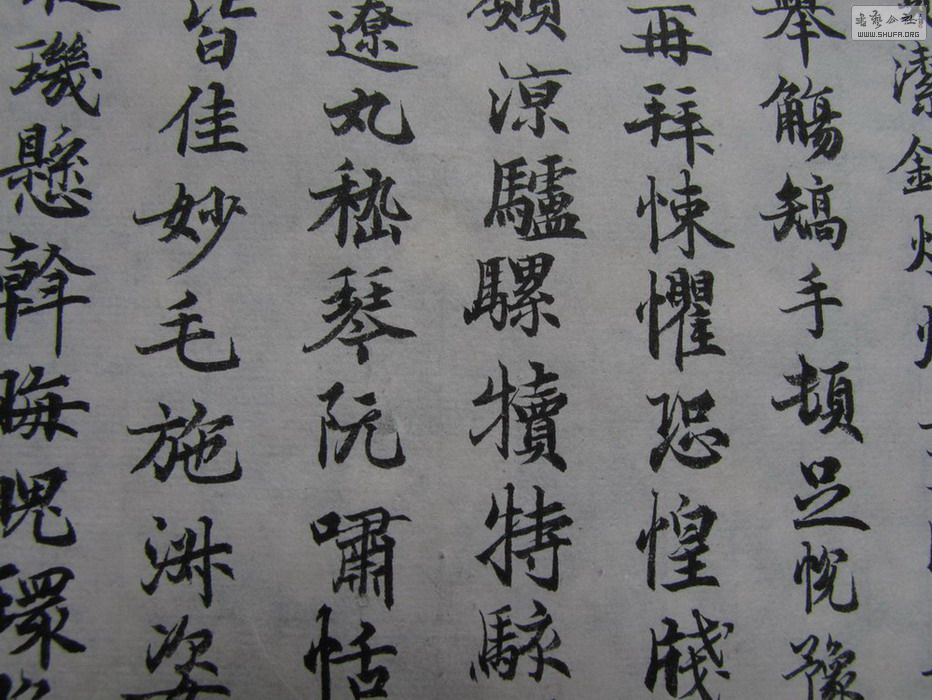 潔銀燭煒
舉觴矯手頓足悅豫
再拜悚懼恐惶牋
願涼驢騾犢特駭
遼丸嵇琴阮嘯恬
皆佳妙毛施淑姿
璣懸斡晦魄環
WWW.SHUFA.ORG